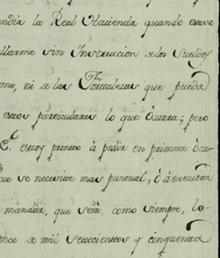 ndia la Real Hacienda quando estuve
llarme sin Instruccion de los Sueldos
no, ni de las Fortalezas que pueda
estos particulares lo que Ocurra; pero
E. estoy pronto à pedir en primera Oca-
que se necesite mas puntual, ô à executar
mandar, que serà, como siempre, lo
once de mil setecientos y cinquenta